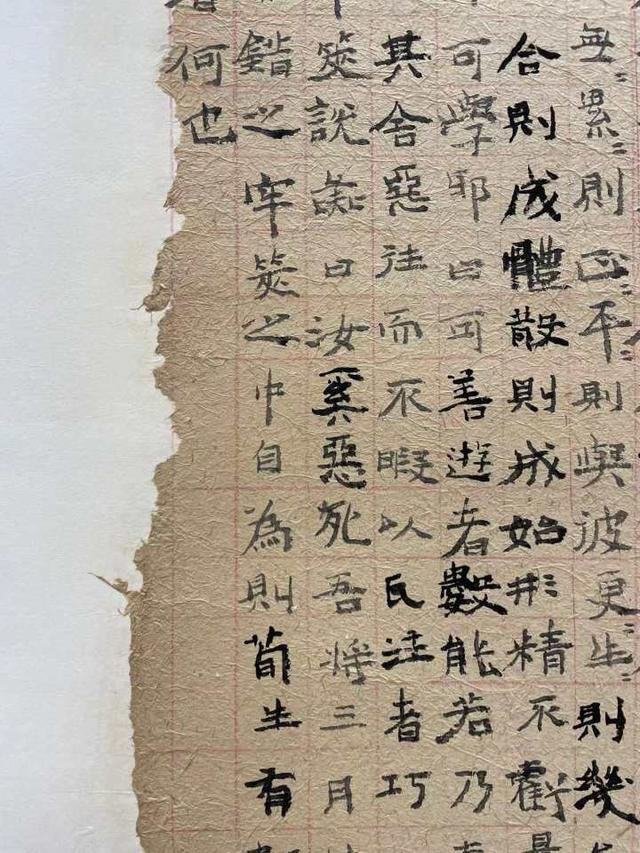 無〻累〻則正〻平〻則與彼更〻生〻則幾〻
合則成體散則成始形精不虧
可學邪曰可善遊者數能若乃
其舍惡往而不暇以瓦注者巧
筴說彘曰汝奚惡死吾將三月
錯之牢筴之中自為則苟生有
何也